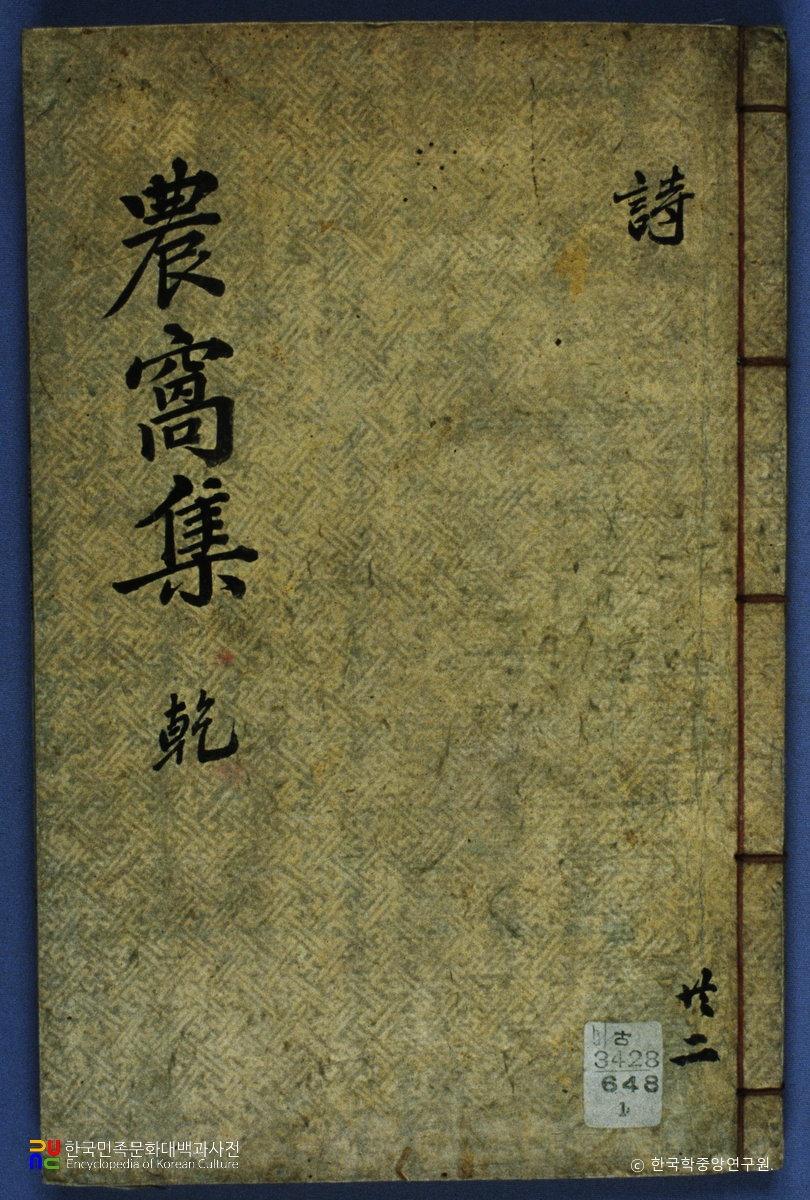 詩
農窩集 乾
共二
古
3428
648
1
한국민족문화대백과사전
Encyclopedia of Korean Culture
© 한국학중앙연구원.